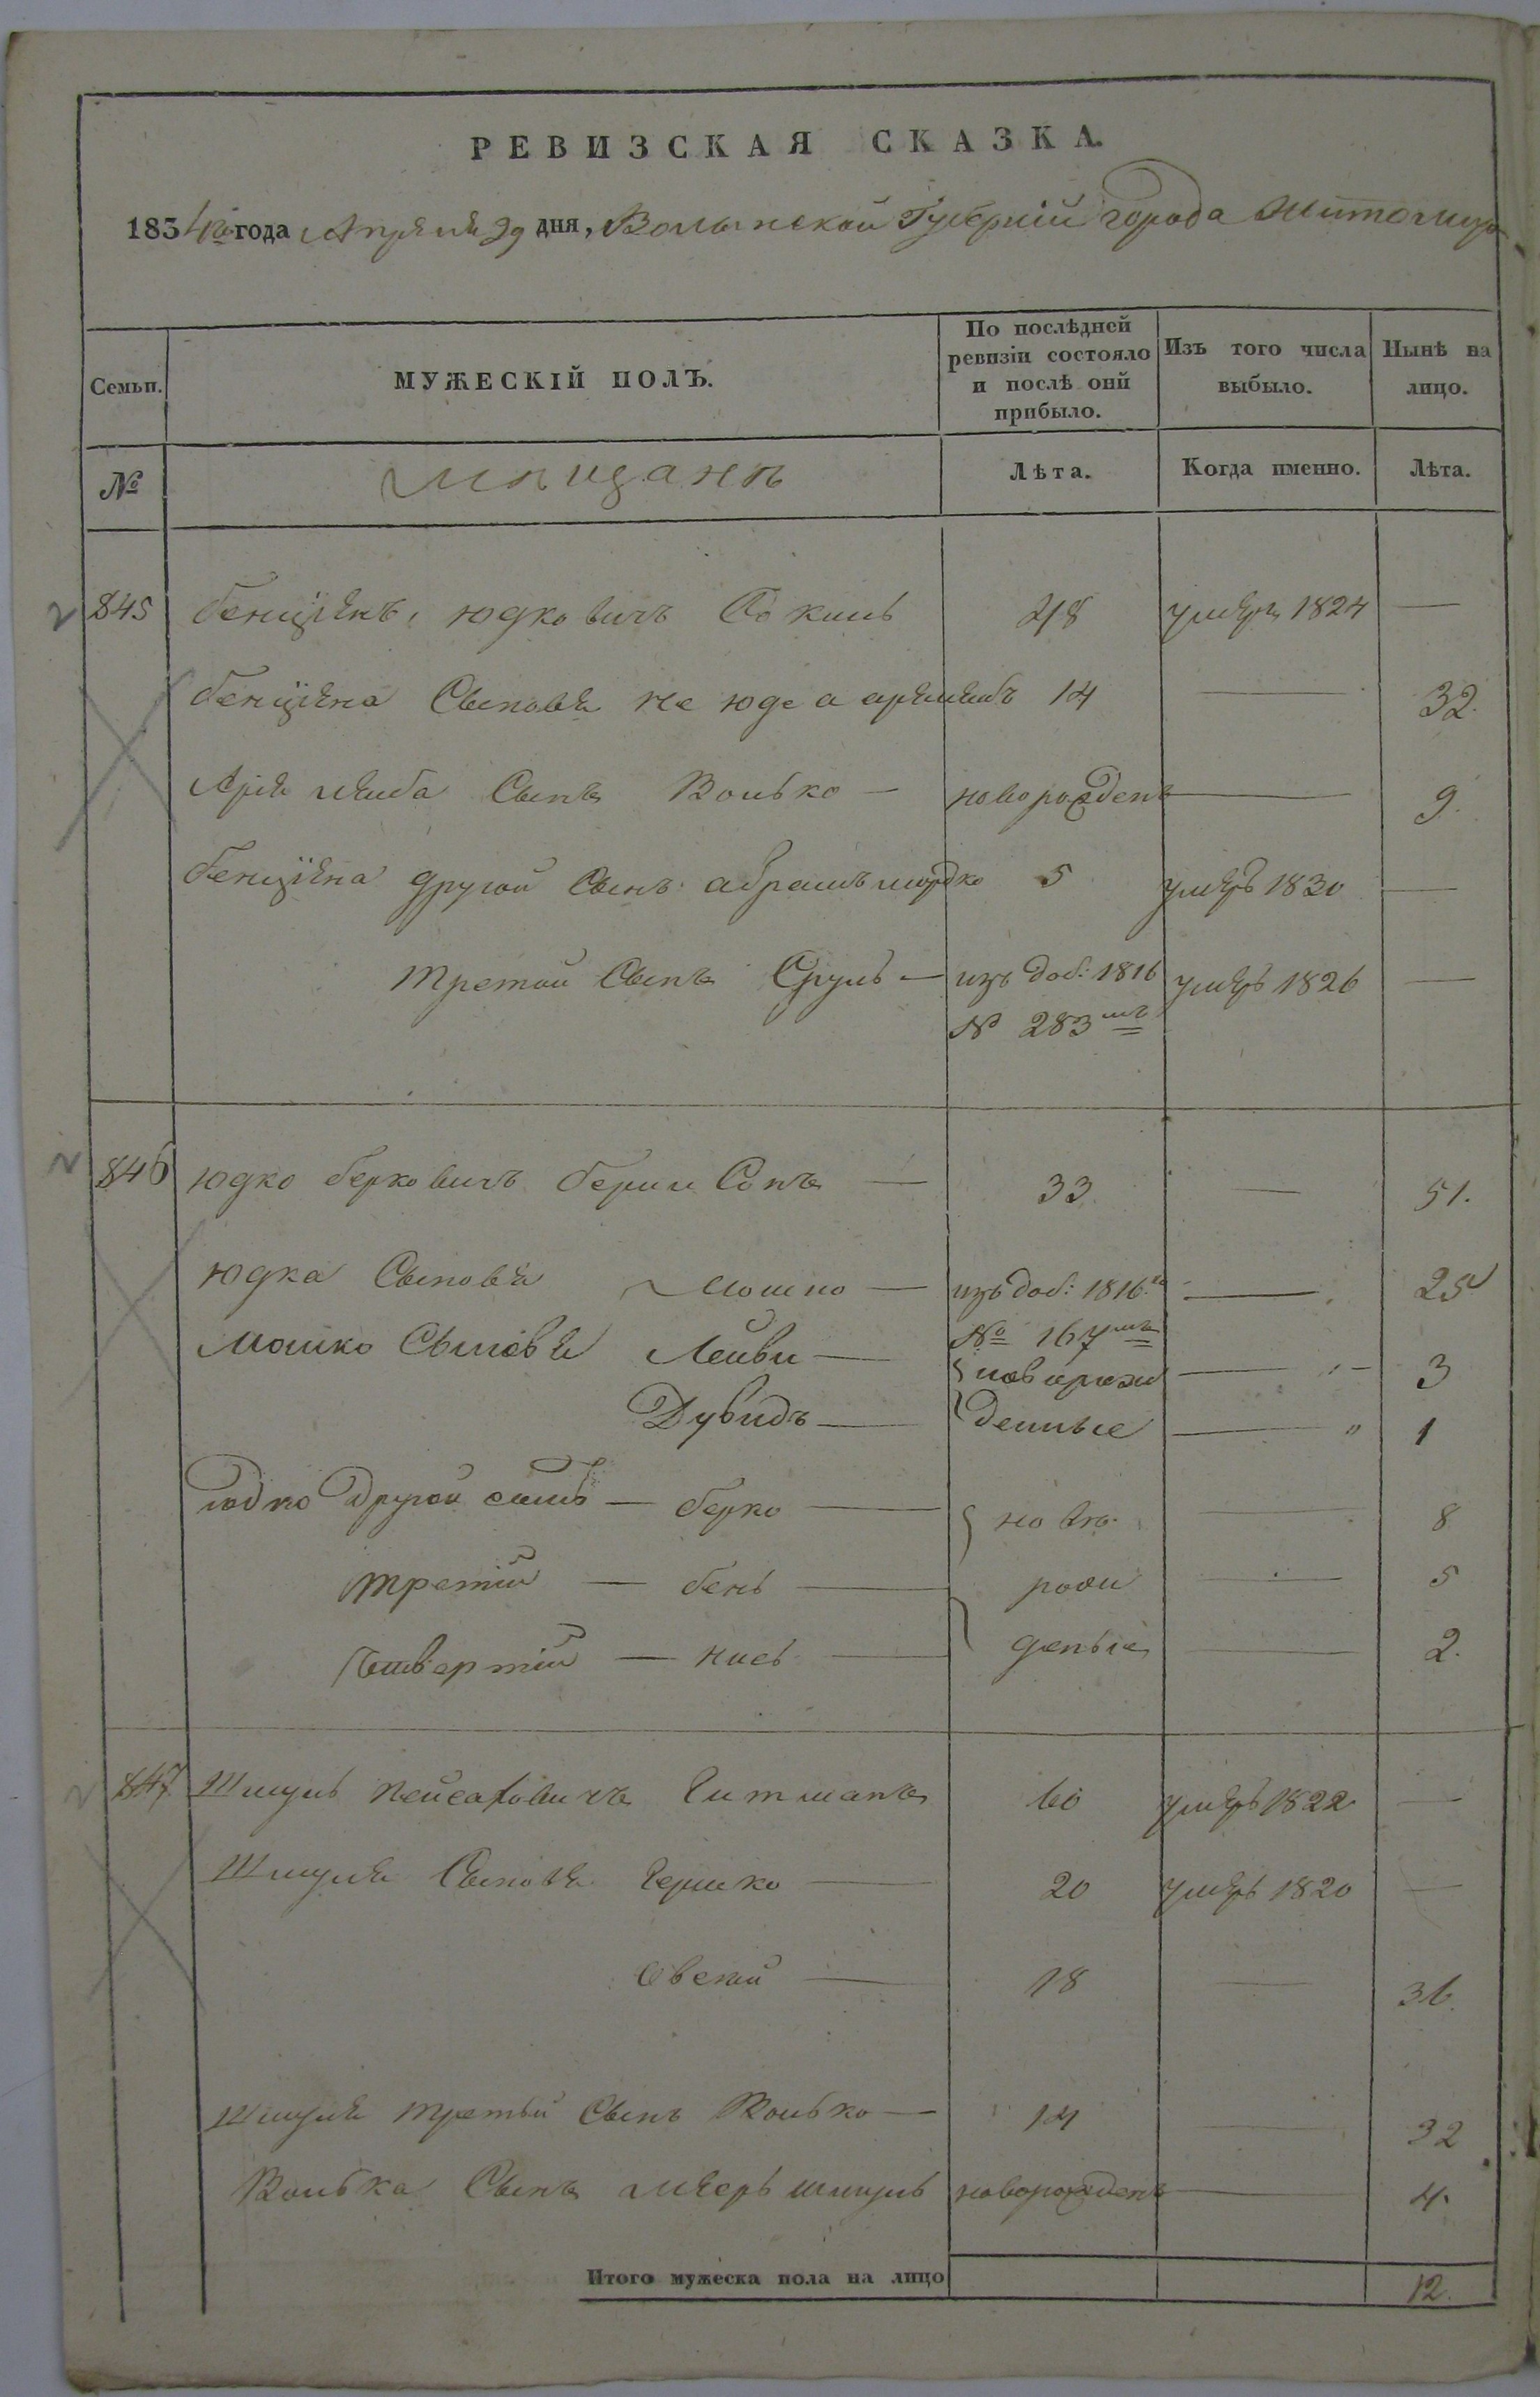 РЕВИЗСКАЯ СКАЗКА.
1834го года Апреля 29 дня, Волынской Губернии города Житомира
Семьи. МУЖЕСКІЙ ПОЛЪ. По послѣдней ревизіи состояло и послѣ оной прибыло. Изъ того числа выбыло. Нынѣ на лицо.
№ Мѣщанѣ Лѣта. Когда именно. Лѣта.
845 Бенціенъ Юдковичъ 48 умеръ 1824 —
Бенціена Сыновя не Юде а арелейбъ 14 — 32.
Аріе лейба Сынъ Волько — новорожденъ — 9.
Бенціена другой Сынъ абрамъ мордко 5 умеръ 1830 —
третой Сынъ Сруль — изъ доб: 1816 умеръ 1826 —
№ 283мъ
846 Юдко Берковичъ — 33 — 51.
Юдка Сыновя Мошко — изъ доб: 1816го — 25
№ 167мъ
Мошко Сыновя Лейви — новорож — 3
Дувидъ — денные — " 1
Юдко другой сынъ — берко — ново — 8
третій — бень — рож — 5
Четвертій — нисъ — деные — 2.
847 Шмуль Пейсаховичъ Гитманъ 60 умеръ 1822 —
Шмуля Сыновя Гершко — 20 умеръ 1820 —
Овсей — 18 — 36.
Шмуля третьй Сынъ Волько — 14 — 32
Волька Сынъ меерь шмуль новорожденъ — 4.
Итого мужеска пола на лицо 12.